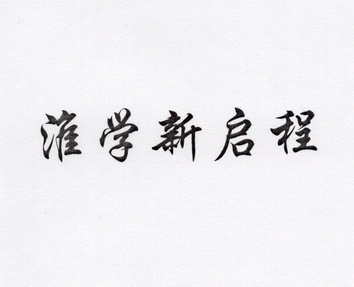 淮学新启程